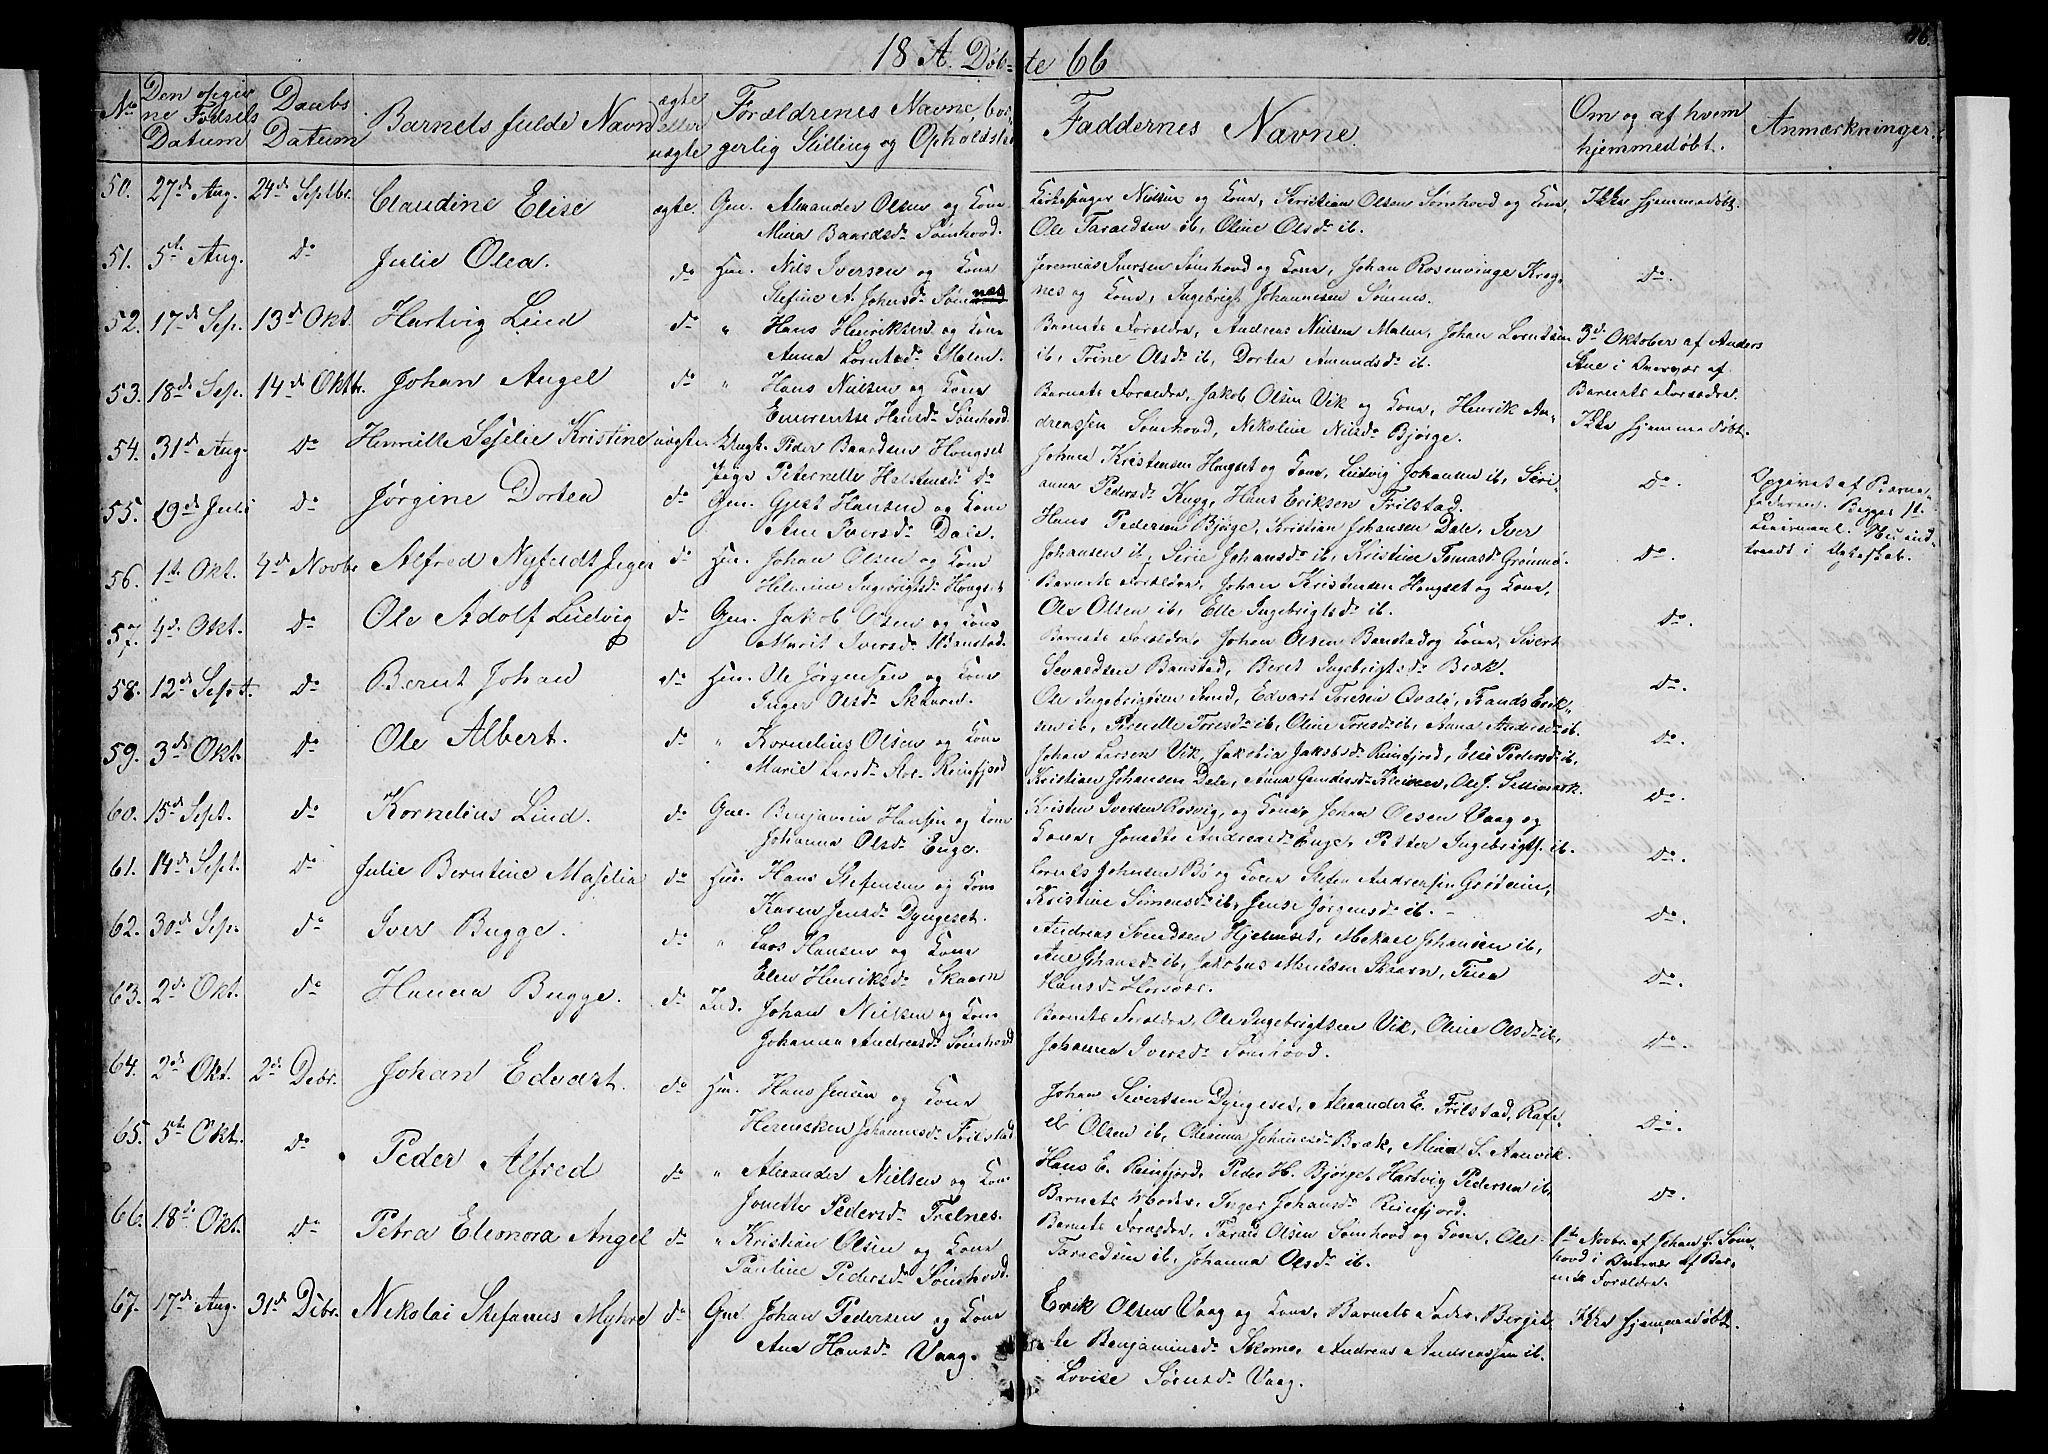 18 A. Døb-
te 66
46.
No
Den opgiv
ne Fødsels
Datum
Daabs
Datum
Barnets fulde Navn
ægte
eller
uægte
Forældrenes Navne, bor
gerlig Stilling og Opholdsst
Faddernes Navne.
Om og af hvem
hjemmedøbt.
Anmærkninger.
50. 27de Aug. 24de Septbr. Claudine Elise ægte. Gm. Alexander Olsen og Kone
Mina Baardsdr Sømhovd.
Kirkesanger Nielsen og Kone, Kristian Olsen Sømhovd og Kone,
Ole Taraldsen ib, Oline Olsdr ib.
Ikke hjemmedøbt.
51. 5te Aug. do Julie Olea. do Hm. Nils Iversen og Kone
Stefine A. Johansdr Sømnæs
Jeremias Iversen Sømhovd og Kone, Johan Rosenvinge Krog-
nes og Kone, Ingebrigt Johannesen Sømnes.
do.
52. 17de Sep. 13de Okt. Hartvig Lind do " Hans Henriksen og Kone
Anna Lorntsdr Malen.
Barnets Forældre, Andreas Nielsen Malen, Johan Lorntsen
ib, Trine Olsdr ib, Dortea Amundsdr ib.
3de Oktober af Anders
Ane i Nærvær af
Barnets Forældre.
53. 18de Sep. 14de Oktb. Johan Angel do " Hans Nielsen og Kone
Emerentse Hansdr Sømhovd.
Barnets Forældre, Jakob Olsen Vik og Kone, Henrik An-
dreassen Sømhovd, Nikoline Nilsdr Bjørge.
Ikke hjemmedøbt.
54. 31de Aug. do Henrikke Kristine uægte. Ungk. Peder Baardsen Hongset
Pige Peternelle Halstensdr do
Johan Kristensen Hongset og Kone, Ludvig Johansen ib, Seri-
anna Pedersdr Kugg, Hans Eriksen Trilstad.
do.
Opgivet af Barne-
faderen. Begges 1t
Leiermaal. Nu ind-
traadt i Ægteskab.
55. 19de Juli do Jørgine Dortea do Gm. Gjert Hansen og Kone
Ane Iversdr Dale.
Hans Pedersen Bjørge, Kristian Johansen Dale, Iver
Johansen ib, Sirie Johansdr ib, Kristine Tomasdr Grønmo
do.
56. 1te Okt. 4de Novbr Alfred Nyfeldt Inger do Hm. Johan Olsen og Kone
Helmine Ingebrigtsdr Hongset
Barnets Forældre, Johan Kristensen Hongset og Kone,
Ole Olsen ib, Elle Ingebrigtsdr ib.
do.
57. 4de Okt. do Ole Adolf Ludvig do Gm. Jakob Olsen og Kone
Marit Iversdr Banstad.
Barnets Forældre, Johan Olsen Banstad og Kone, Sivert
Sevaldsen Banstad, Beret Ingebrigtsdr Bræk.
do.
58. 12de Sept. do Bernt Johan do Hm. Ole Jørgensen og Kone
Inger Olsdr Skauren.
Ole Ingebrigtsen Sund, Edvart Toresen Qvalø, Frands Erik-
sen ib, Pernille Toresdr ib, Oline Toresdr ib, Anna Andersdr ib.
do.
59. 3de Okt. do Ole Albert. do " Kornelius Olsen og Kone
Marie Larsdr Reinfjord
Johan Larsen Vik, Jakobia Jakobsdr Reinfjord, Else Pedersdr ib,
Kristian Johansen Dale, Anna Gundersdr Kleiven, Ole J. Sellimark.
do.
60. 15de Sept. do Kornelius Lind. do Gm. Benjamin Hansen og Kone
Johanna Olsdr Enge.
Kristen Iversen Rosvig, og Kone, Johan Olsen Vaag og
Kone, Jonette Andreasdr Enge, Petter Ingebrigtsen ib.
do.
61. 14de Sept. do Julie Berntine Maselia do Hm. Hans Stefensen og Kone
Karen Jensdr Dyngeset.
Lornts Johnsen Bø og Kone Stefen Andersen Grødeim,
Kristine Simonsdr ib, Jense Jørgensdr ib.
do.
62. 30de Sep. do Iver Bugge. do " Lars Hansen og Kone
Elen Henriksdr Skaarn
Andreas Svendsen Hjelmset, Mekael Johansen ib,
Ane Johansdr ib, Jakobus Skaarn, Tina
Hansdr Horsvær.
do.
63. 2de Okt. do Hanna Bugge. do Ind. Johan Nielsen og Kone
Johanna Andreasdr Sømhovd
Barnets Forældre, Ole Ingebrigtsen Vik, Oline Olsdr ib,
Johanna Iversdr Sømhovd.
do.
64. 2de Okt. 2de Debr. Johan Edvart. do Hm. Hans Jensen og Kone
Johannesdr Trilstad
Johan Sivertsen Dyngeset, Alexander E. Trilstad, Rafa-
el Olsen ib, Olianna Johansdr Bræk, Mina S. Aanvik.
do.
65. 5te Okt. do Peder Alfred do " Alexander Nielsen og Kone
Jonette Pedersdr Trelnes.
Hans E. Reinfjord, Peder H. Bjørge, Hartvig Pedersen ib,
Barnets Moder, Inger Johansdr Reinfjord.
do.
66. 18de Okt. do Petra Eleonora Angel do " Kristian Olsen og Kone
Pauline Pedersdr Sømhovd.
Barnets Forældre, Tarald Olsen Sømhovd og Kone, Ole
Taraldsen ib, Johanna Olsdr ib.
1te Novbr. af Johan J. Søm-
hovd i Nærvær af Bar-
nets Forældre.
67. 17de Aug. 31de Debr. Nikolai Stefanus Myhre do Gm. Johan Pedersen og Kone
Ane Hansdr Vaag.
Erik Olsen Vaag og Kone, Barnets Fader, Bergit-
te Benjaminsdr Skomo, Andreas Andreassen ib.
Lovise Sørensdr Vaag.
Ikke hjemmedøbt.